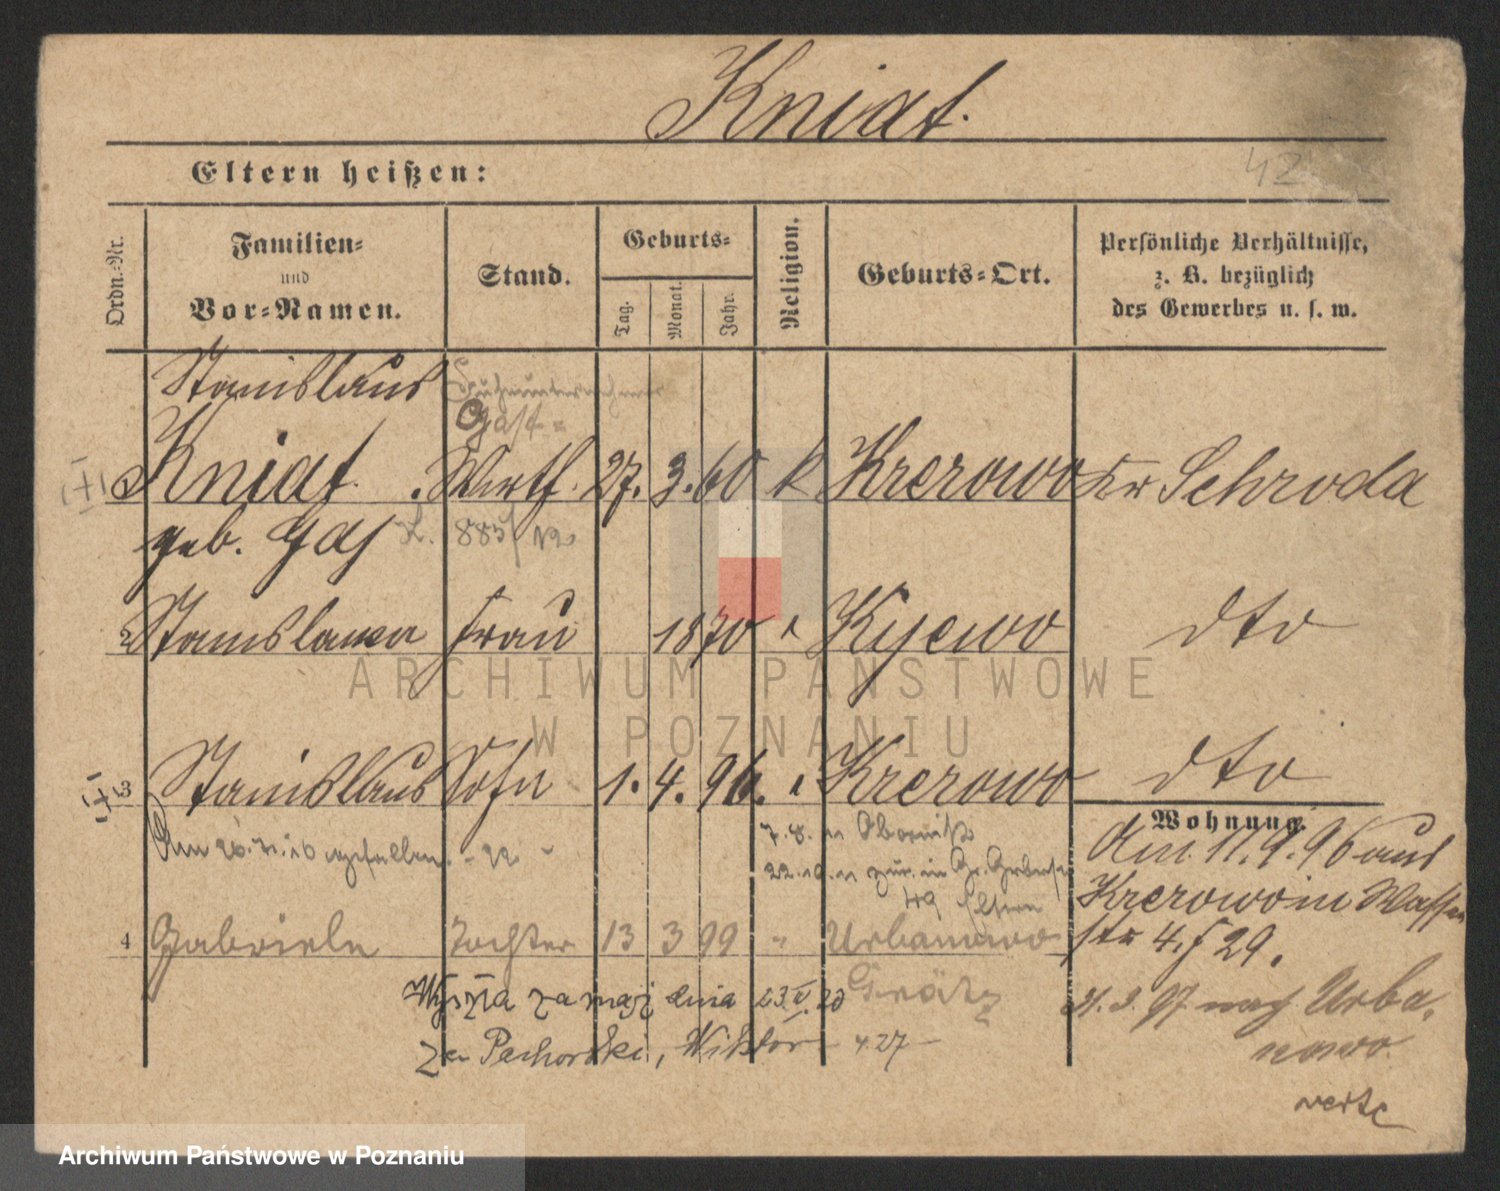 Kniat.
Eltern heißen:
42
Ordn.-Nr.
Familien-
und
Vor-Namen.
Stand.
Geburts-
Tag.
Monat.
Jahr.
Religion.
Geburts-Ort.
Persönliche Verhältnisse,
z. B. bezüglich
des Gewerbes u. s. w.
Stanislaus Fuhrunternehmer
Gast-
1 Kniat. Wirth. 27. 3. 60 k Krerowo Kr Schroda
geb. Gaj K. 885/
2 Stanislawa Frau 1870 Kijewo dto
ARCHIWUM PAŃSTWOWE
W POZNANIU
3 Stanislaus Sohn 1. 4. 96. Krerowo dto
Wohnung.
Am gefallen 7. 8. Obornik
22.10. zur. in Gr.
49 Eltern
Am 11.9.96 aus
Krerowo in Wasser
str 4. f 29.
4 Gabriele Tochter 13 3 99 " Urbanowo
Grätz
Wyszła za mąż dnia 23.V.20
za Pachorski, Wiktor 27
21.3.97 nach Urba-
nowo.
verte
Archiwum Państwowe w Poznaniu